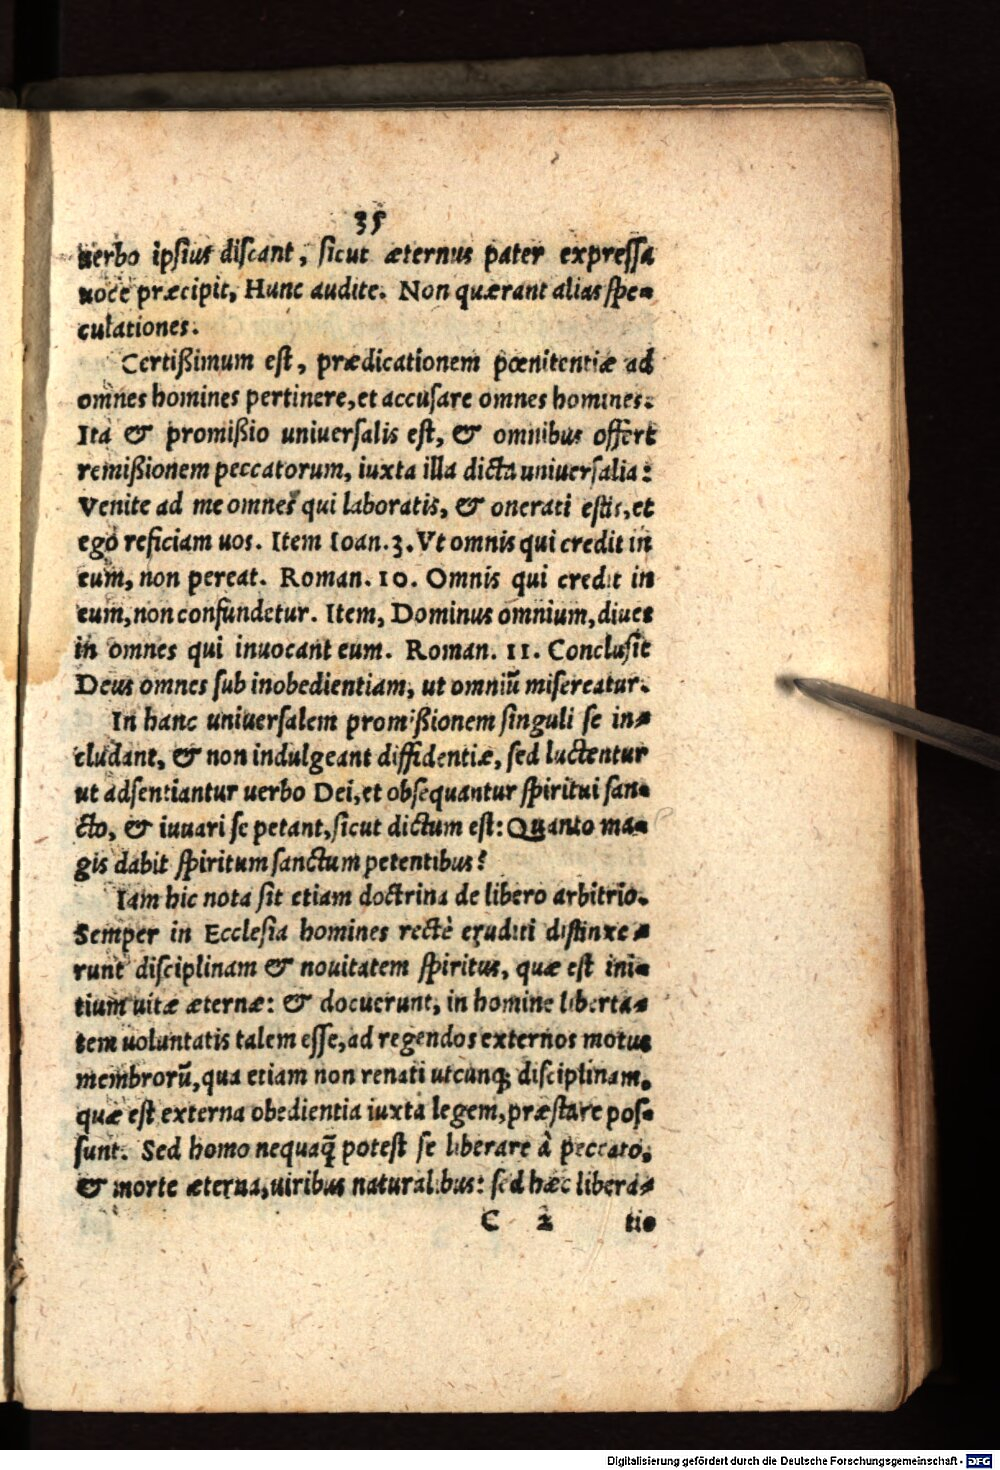 35
uerbo ipsius discant, sicut æternus pater expressa
uoce præcipit, Hunc audite. Non quærant alias spe-
culationes.
Certißimum est, prædicationem pœnitentiæ ad
omnes homines pertinere, et accusare omnes homines.
Ita & promißio uniuersalis est, & omnibus offert
remißionem peccatorum, iuxta illa dicta uniuersalia:
Venite ad me omnes qui laboratis, & onerati estis, et
ego reficiam uos. Item Ioan. 3. Vt omnis qui credit in
eum, non pereat. Roman. 10. Omnis qui credit in
eum, non confundetur. Item, Dominus omnium, diues
in omnes qui inuocant eum. Roman. 11. Conclusit
Deus omnes sub inobedientiam, ut omniũ misereatur.
In hanc uniuersalem promißionem singuli se in-
cludant, & non indulgeant diffidentiæ, sed luctentur
ut adsentiantur uerbo Dei, et obsequantur spiritui san-
cto, & iuuari se petant, sicut dictum est: Quanto ma-
gis dabit spiritum sanctum petentibus?
Iam hic nota sit etiam doctrina de libero arbitrio.
Semper in Ecclesia homines rectè eruditi distinxe-
runt disciplinam & nouitatem spiritus, quæ est ini-
tium uitæ æternæ: & docuerunt, in homine liberta-
tem uoluntatis talem esse, ad regendos externos motus
membrorũ, qua etiam non renati utcunq; disciplinam,
quæ est externa obedientia iuxta legem, præstare pos-
sunt. Sed homo nequaq̃ potest se liberare à peccato,
& morte æterna, uiribus naturalibus: sed hæc libera-
C 2 tio
Digitalisierung gefördert durch die Deutsche Forschungsgemeinschaft - DFG